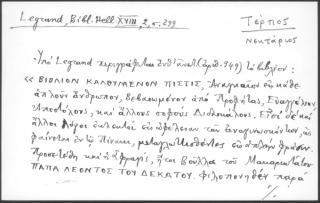 Legrand, Bibl. Hell. XVIII, 2, σ. 299
Τέρπος
Νεκτάριος
Ὑπὸ Legrand περιγράφεται ἀνθ' (ἀριθ. 949) τὸ βιβλίον:
«ΒΙΒΛΙΟΝ ΚΑΛΟΥΜΕΝΟΝ ΠΙΣΤΙΣ, Ἀναγκαῖον εἰς κάθε
ἁπλοῦν ἄνθρωπον, βεβαιωμένον ἀπὸ Προφήτας, Εὐαγγέλιον,
Ἀποστόλους, καὶ ἄλλους σοφοὺς Διδασκάλους. Εἰσὶ δὲ καὶ
ἄλλοι Λόγοι ἐκλεκτοὶ εἰς ὠφέλειαν τῶν ἀναγινωσκόντων, ὡς
φαίνεται ἐν τῷ Πίνακι, μεταγλωττισθέντες εἰς ἁπλῆν φράσιν.
Προσετέθη καὶ ἡ ἔκφρασις, ἤτοι βοῦλλα τοῦ Μακαριωτάτου
ΠΑΠΑ ΛΕΟΝΤΟΣ ΤΟΥ ΔΕΚΑΤΟΥ. φιλοπονηθὲν παρὰ
./.